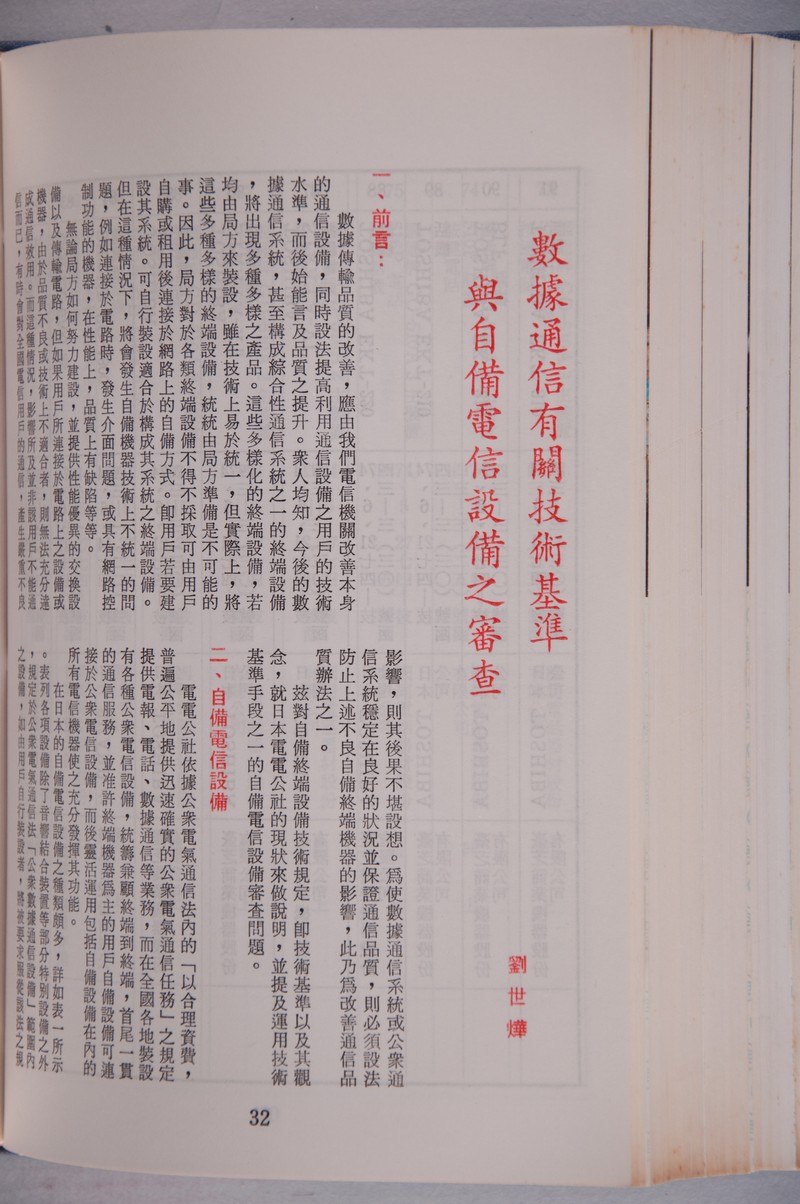 數據通信有關技術基準
與自備電信設備之審查
劉世燁
一、前言：
數據傳輸品質的改善，應由我們電信機關改善本身
的通信設備，同時設法提高利用通信設備之用戶的技術
水準，而後始能言及品質之提升。衆人均知，今後的數
據通信系統，甚至構成綜合性通信系統之一的終端設備
，將出現多種多樣之產品。這些多樣化的終端設備，若
均由局方來裝設，雖在技術上易於統一，但實際上，將
這些多種多樣的終端設備，統統由局方準備是不可能的
事。因此，局方對於各類終端設備不得不採取可由用戶
自購或租用後連接於網路上的自備方式。卽用戶若要建
設其系統。可自行裝設適合於構成其系統之終端設備。
但在這種情況下，將會發生自備機器技術上不統一的問
題，例如連接於電路時，發生介面問題，或具有網路控
制功能的機器，在性能上，品質上有缺陷等等。
無論局方如何努力建設，並提供性能優異的交換設
備以及傳輸電路，但如果用戶所連接於電路上之設備或
機器，由於品質不良或技術上不適合者，則無法充分達
成通信效用。而這種情況，影響所及並非該用戶不能通
信而已，有時會對全國電信用戶的通信，產生嚴重不良
影響，則其後果不堪設想。爲使數據通信系統或公衆通
信系統穩定在良好的狀況並保證通信品質，則必須設法
防止上述不良自備終端機器的影響，此乃爲改善通信品
質辦法之一。
茲對自備終端設備技術規定，卽技術基準以及其觀
念，就日本電電公社的現狀來做說明，並提及運用技術
基準手段之一的自備電信設備審查問題。
二、自備電信設備
電電公社依據公衆電氣通信法內的「以合理資費，
普遍公平地提供迅速確實的公衆電氣通信任務」之規定
提供電報、電話、數據通信等業務，而在全國各地裝設
有各種公衆電信設備，統籌兼顧終端到終端，首尾一貫
的通信服務，並准許終端機器爲主的用戶自備設備可連
接於公衆電信設備，而後靈活運用包括自備設備在內的
所有電信機器使之充分發揮其功能。
在日本的自備電信設備之種類頗多，詳如表一所示
。表列各項設備除了音響結合裝置等部分特別設備之外
，規定於公衆電氣通信法「公衆數據通信設備」範圍內
之設備，如由用戶自行裝設者，將被要求服從該法之規
32